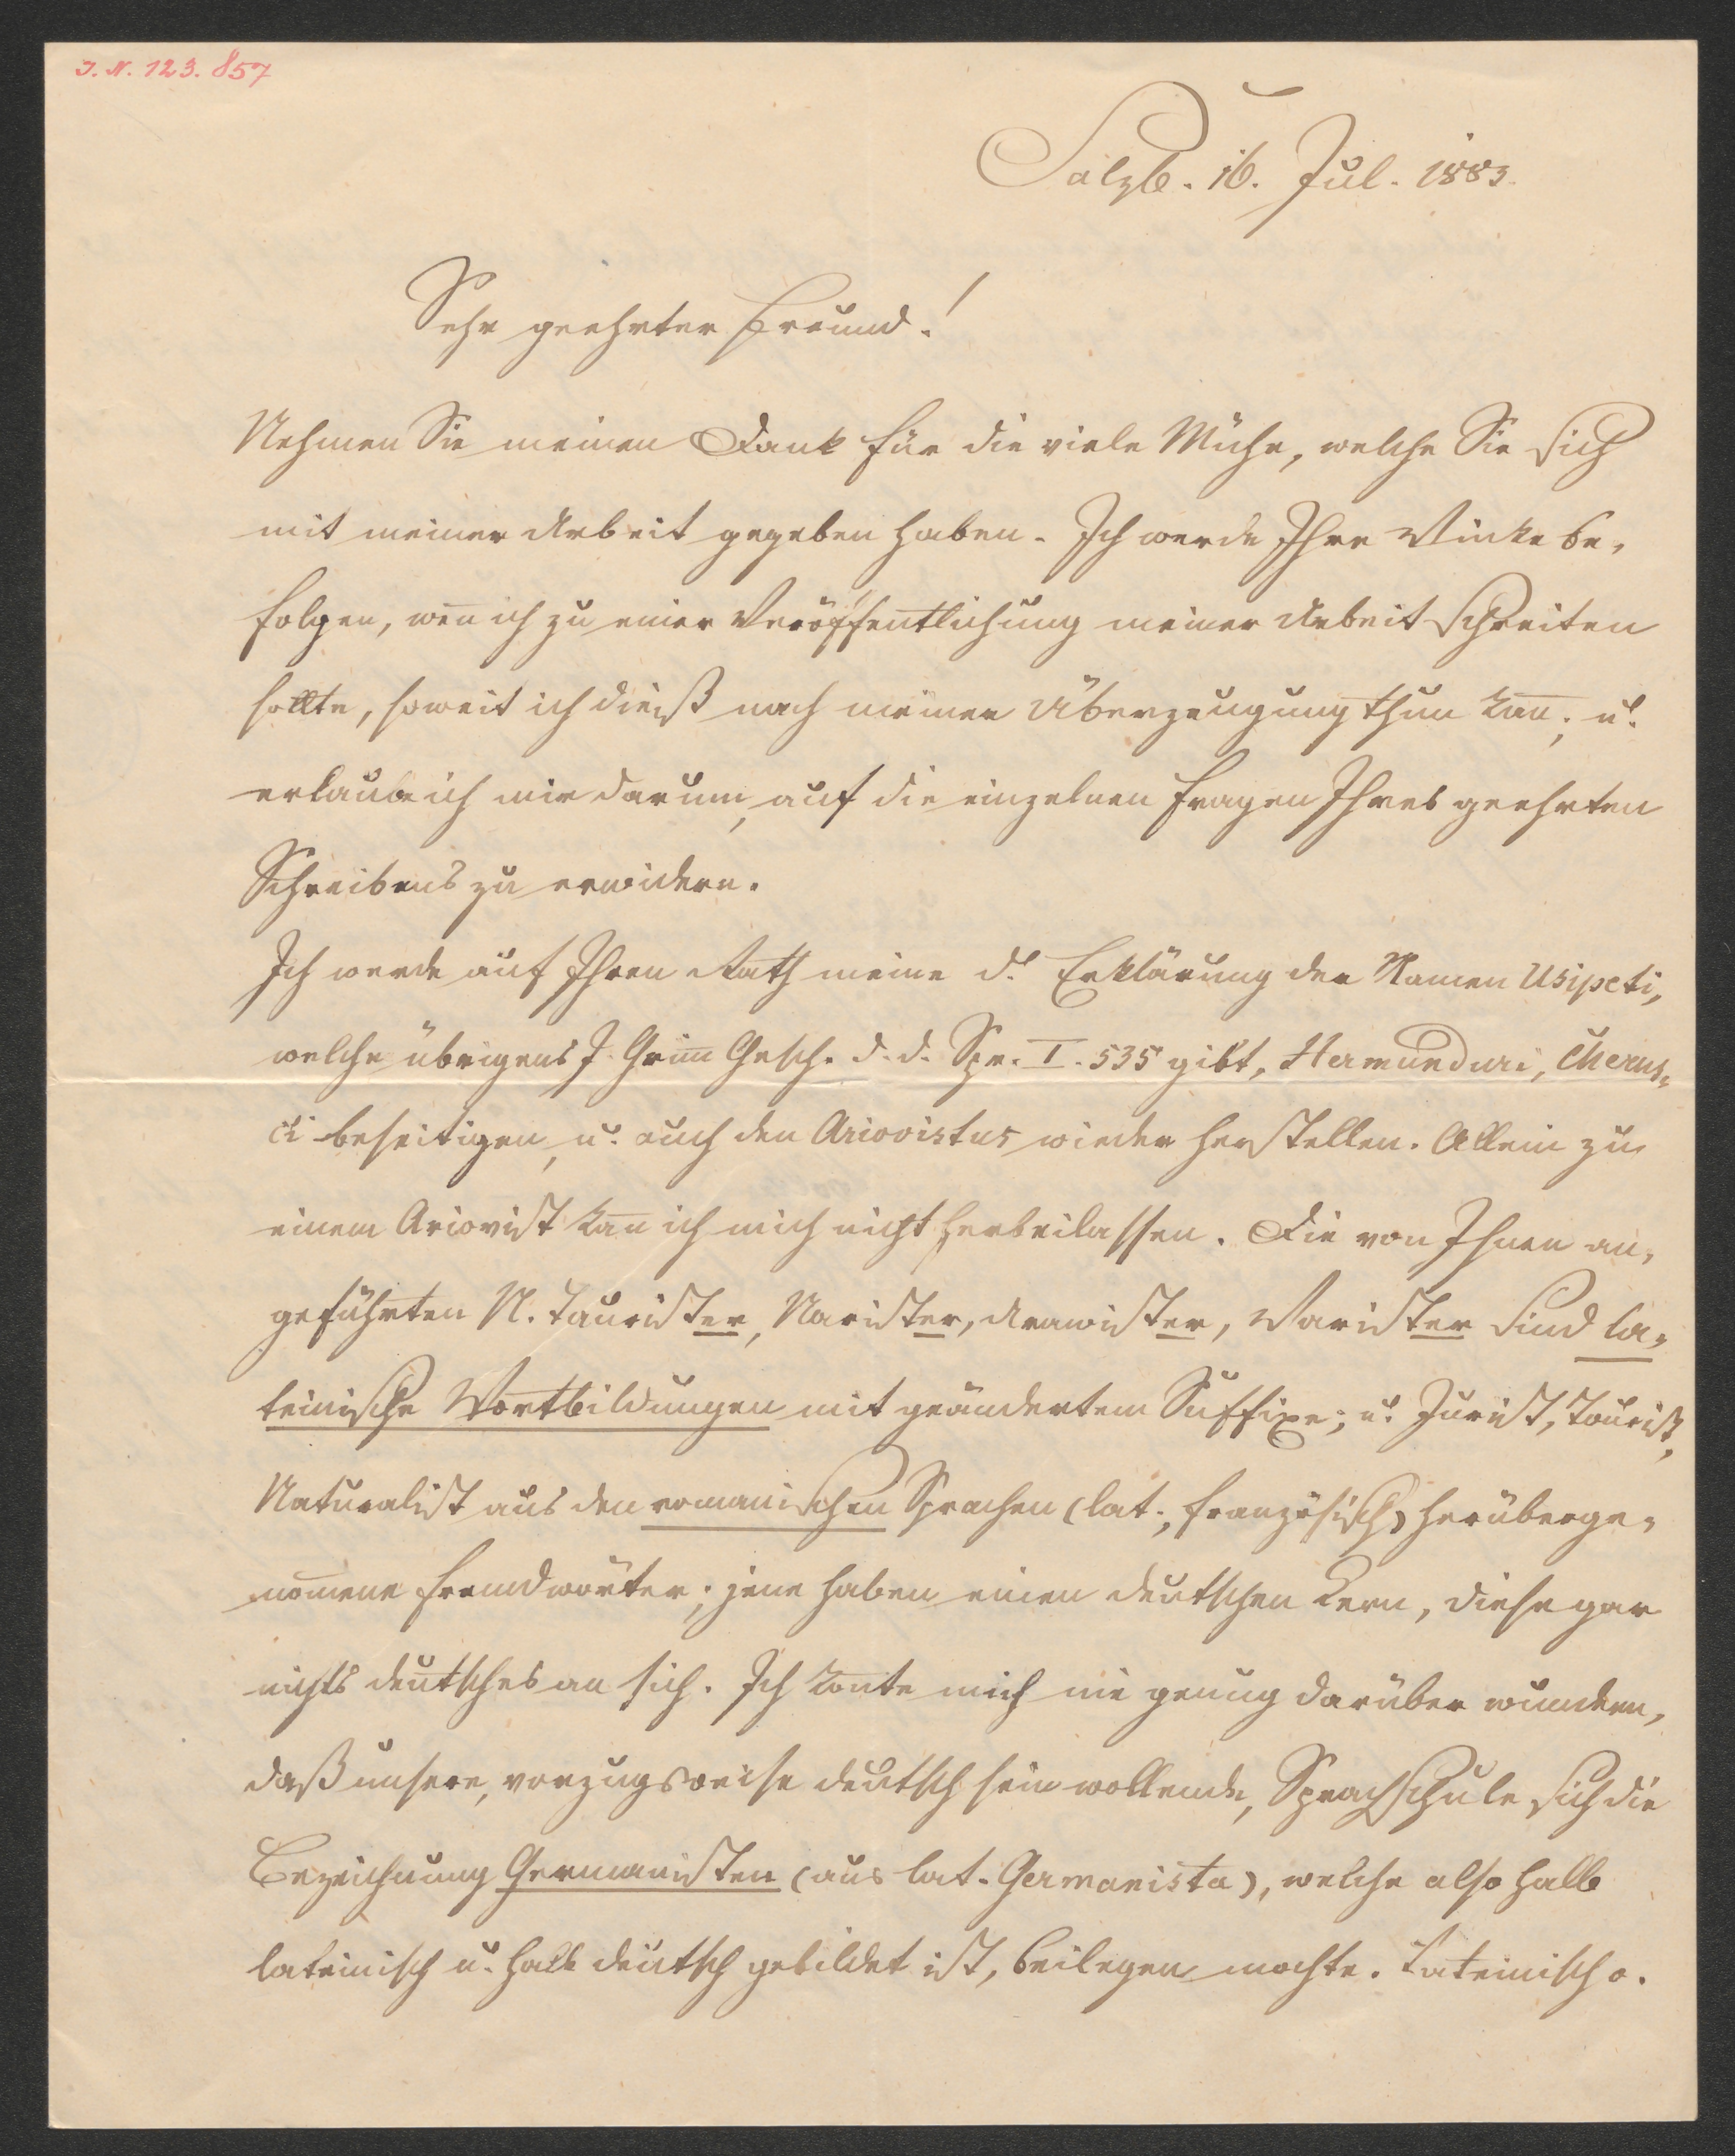 J. N. 123.857
Salzb. 16. Jul. 1883.
Sehr geehrter Freund!
Nehmen Sie meinen Dank für die viele Mühe, welche Sie sich
mit meiner Arbeit gegeben haben. Ich werde Ihre Winke be-
folgen, wen̄ ich zu einer Veröffentlichung meiner Arbeit schreiten
sollte, soweit ich dieß nach meiner Überzeugung thun kan̄; u.
erlaube ich mir darum, auf die einzelnen Fragen Ihres geehrten
Schreibens zu erwidern.
Ich werde auf Ihren Rath meine d. Erklärung der Namen Usipeti,
welche übrigens J. Grim̄ Gesch. d. d. Spr. I. 535 gibt, Hermunduri, Cherus-
ci beseitigen, u. auch den Ariovistus wieder herstellen. Allein zu
einem Ariovist kan̄ ich mich nicht herbeilassen. Die von Ihnen an-
geführten N. Taurister, Narister, Arawister, Varister sind la-
teinische Wortbildungen mit geändertem Suffixe; u. Jurist, Tourist,
Naturalist aus den romanischen Sprachen (lat., französisch) herüberge-
nom̄ene Fremdwörter; jene haben einen deutschen Kern, diese gar
nichts deutsches an sich. Ich kon̄te mich nie genug darüber wundern,
daß unsere, vorzugsweise deutsch sein wollende, Sprachschule sich die
Bezeichnung Germanisten (aus lat. Germanista), welche also halb
lateinisch u. halb deutsch gebildet ist, beilegen mochte. Lateinisch o.